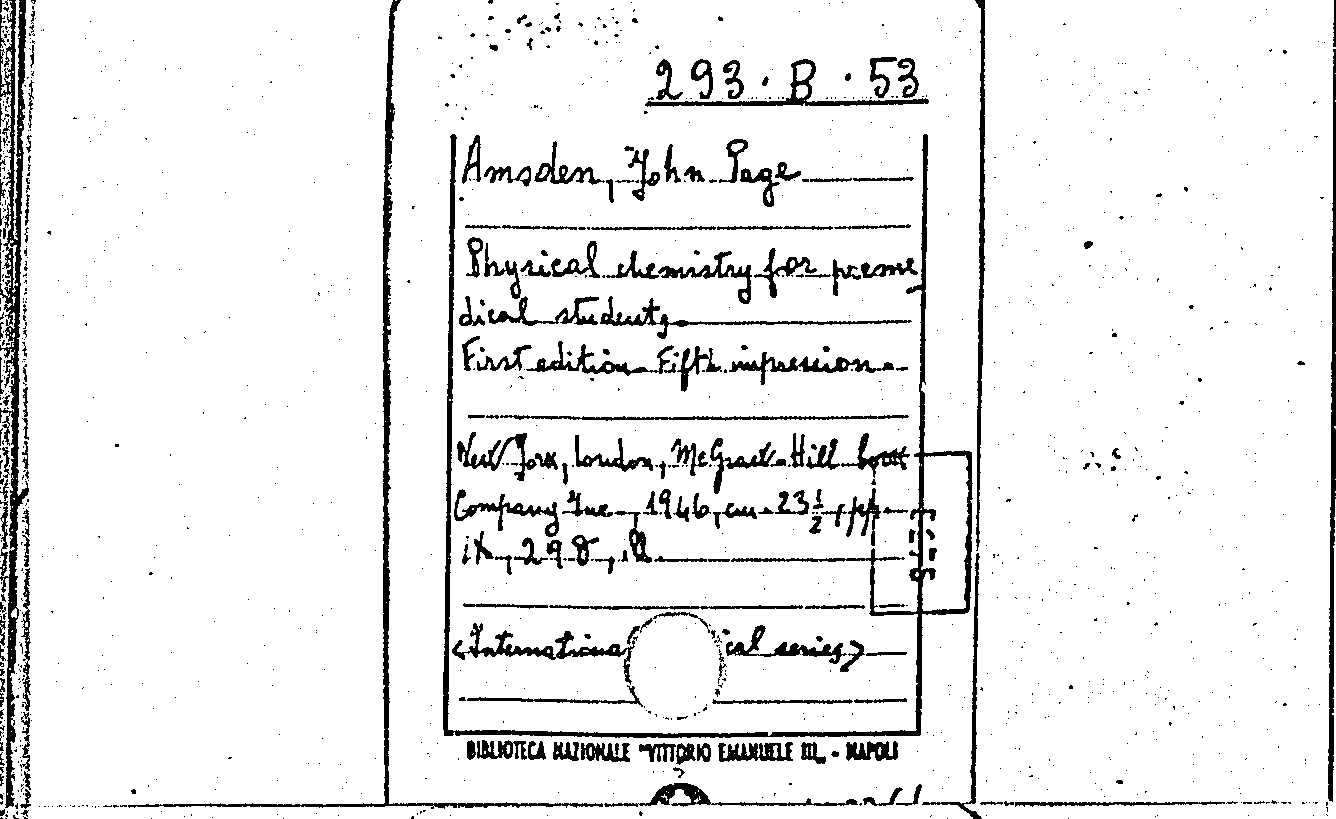 293 · B · 53
Amsden, John Page
Physical chemistry for preme
dical students.
First edition. Fifth impression.
New York, London, McGraw-Hill book
Company Inc., 1946, cm. 23 1/2, pp.
ix, 298, ill.
<International ical series>
BIBLIOTECA NAZIONALE "VITTORIO EMANUELE III„ - NAPOLI